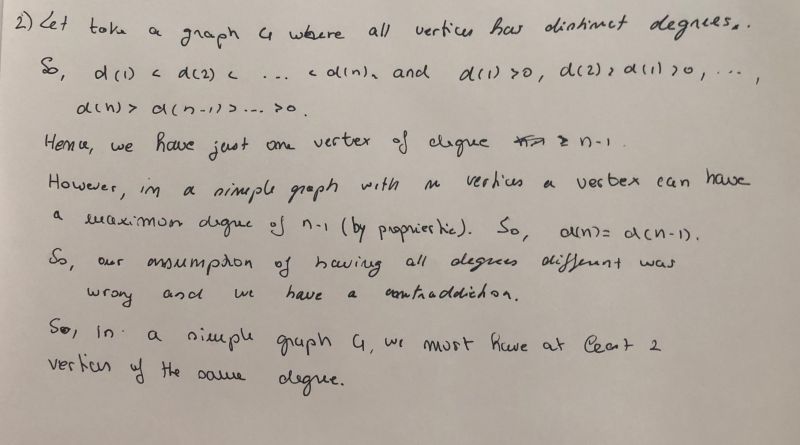 2) Let take a graph G where all vertices has distinct degrees.
So, d(1) < d(2) < ... < d(n), and d(1) > 0, d(2) > d(1) > 0, ...,
d(n) > d(n-1) > ... > 0.
Hence, we have just one vertex of degree ≥ n-1.
However, in a simple graph with n vertices a vertex can have
a maximum degree of n-1 (by propriestic). So, d(n) = d(n-1).
So, our assumption of having all degrees different was
wrong and we have a contraddiction.
So, in a simple graph G, we must have at least 2
vertices of the same degree.